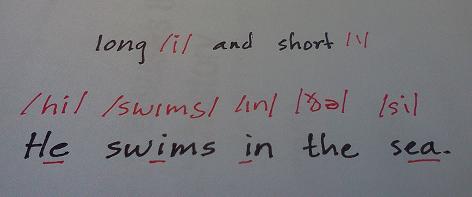 long /i/ and short /ɪ/
/hi/ /swɪms/ /ɪn/ /ðə/ /si/
He swims in the sea.